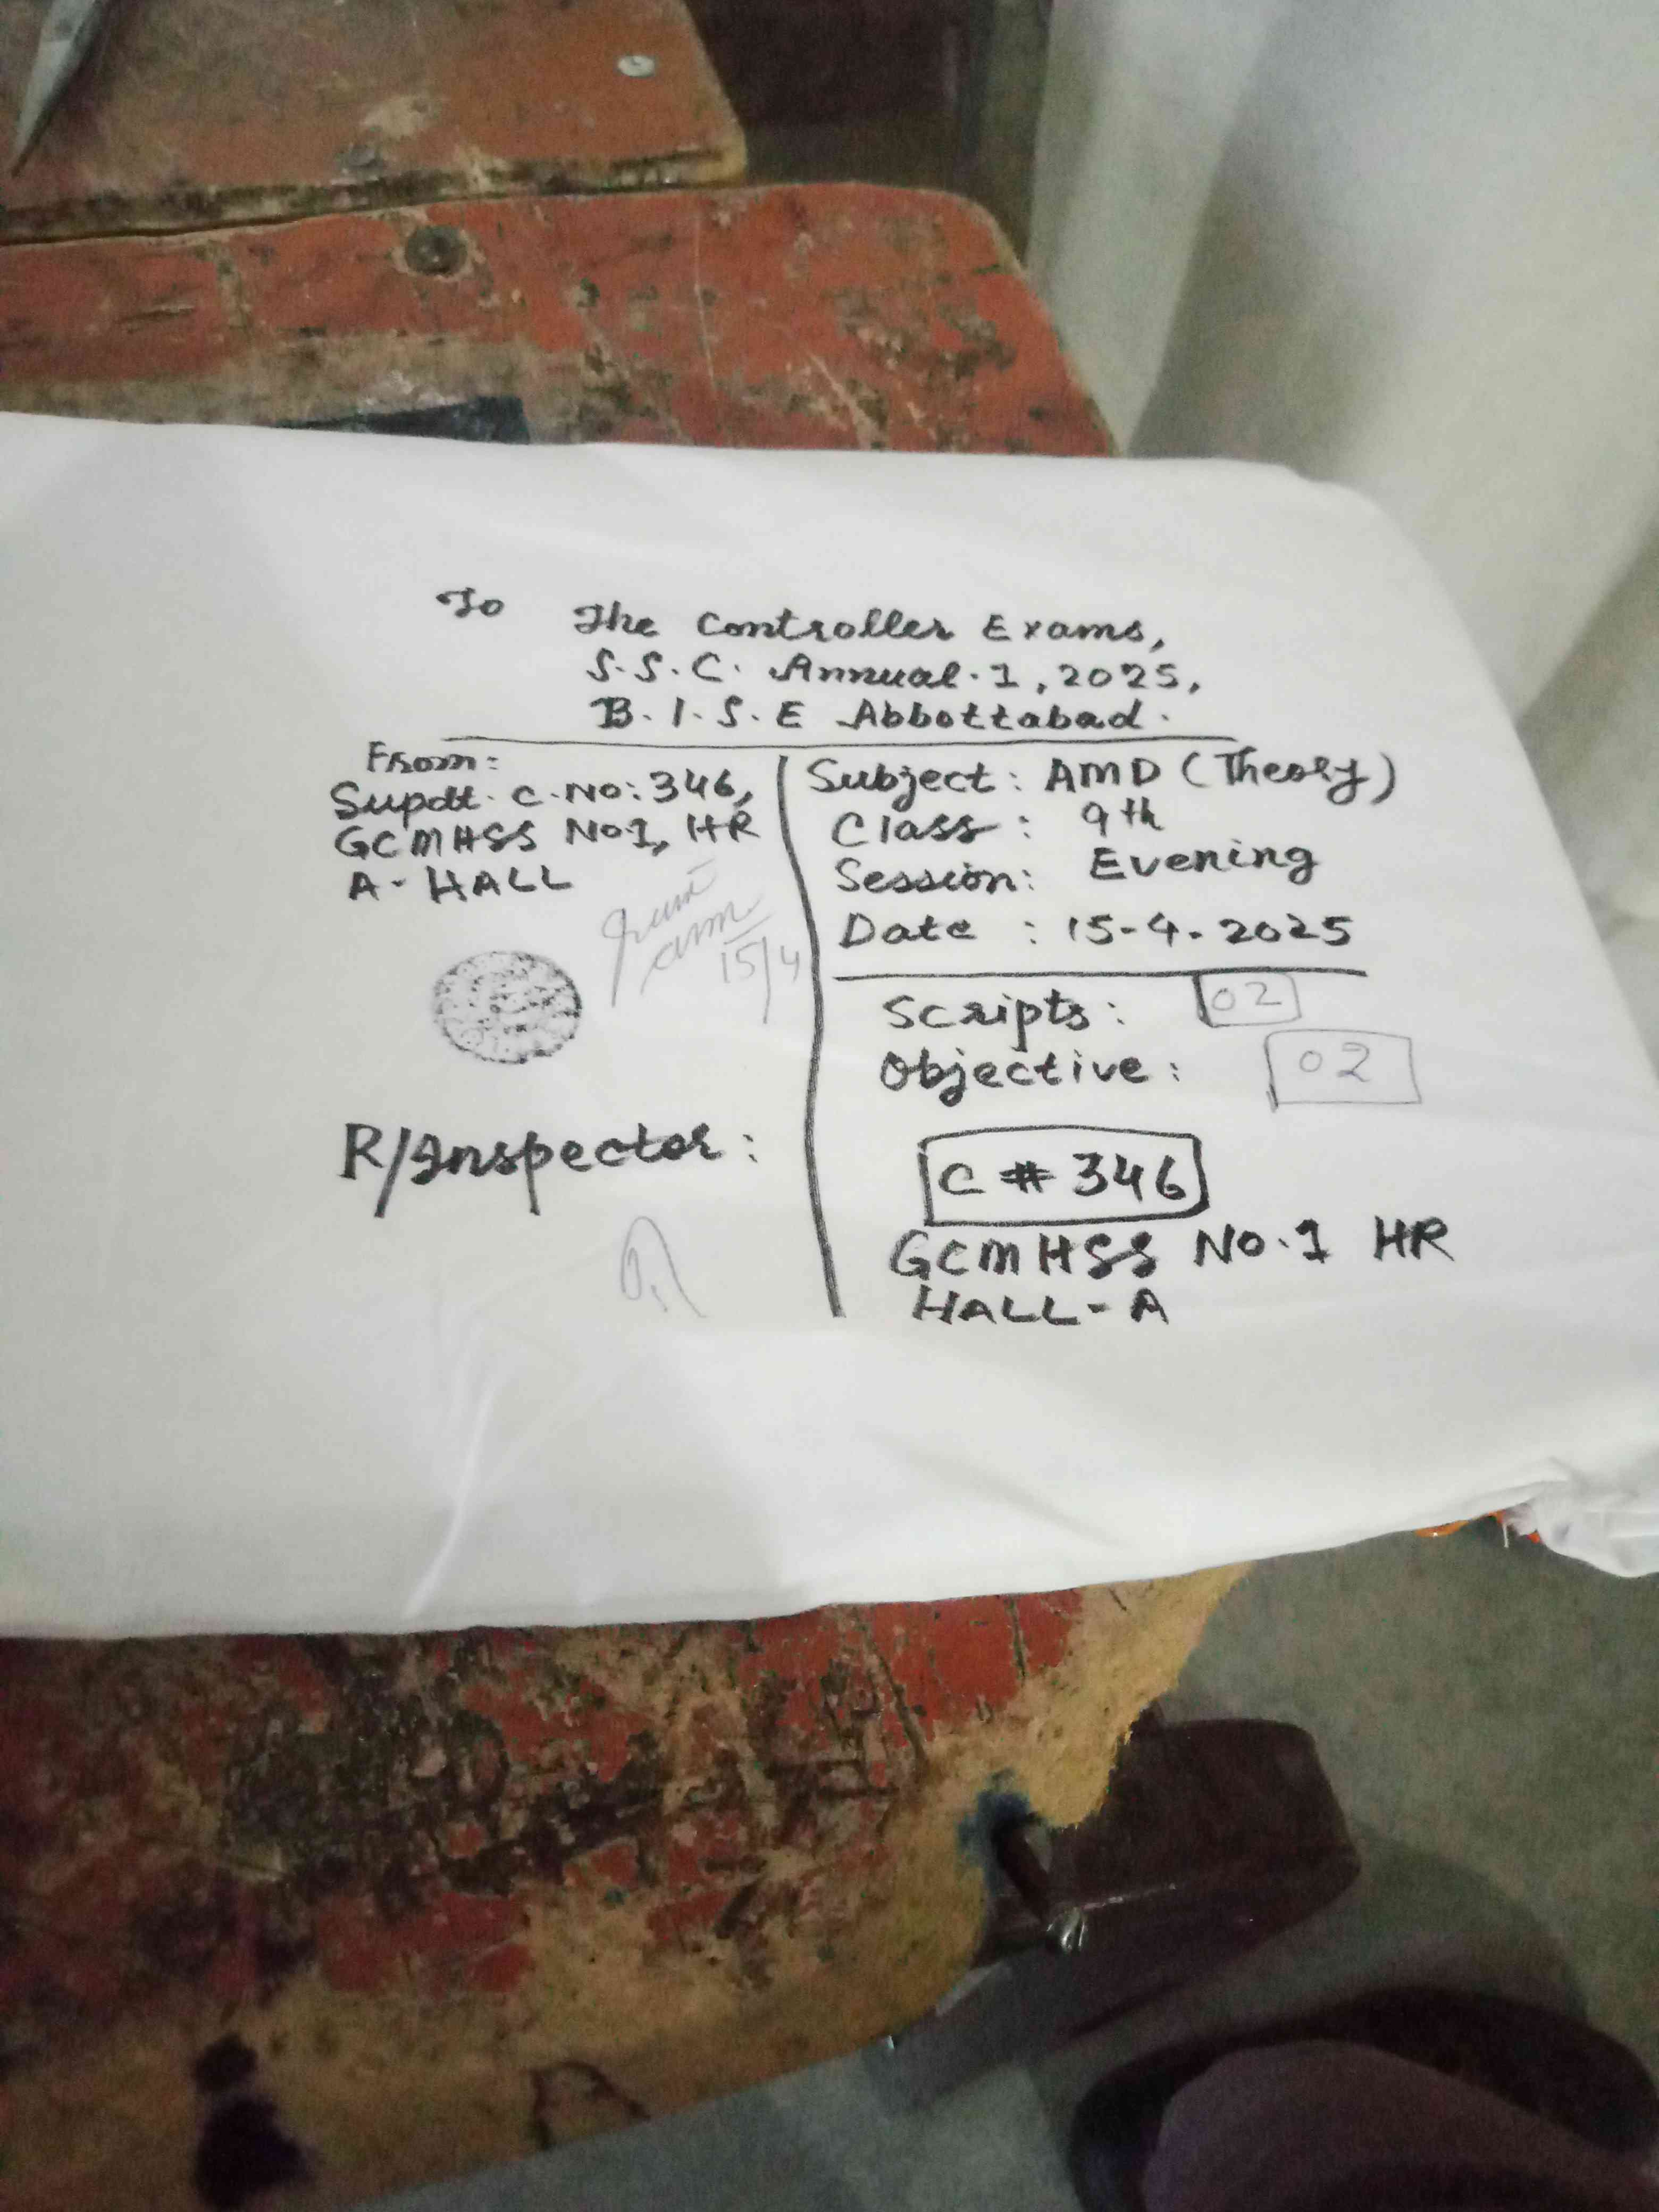 To The Controller Exams,
S.S.C. Annual.1, 2025,
B.I.S.E Abbottabad.
From:
Supdt. C.No: 346,
GCMHSS No.1, HR
A-HALL
15/4
R/Inspector:
Subject: AMD (Theory)
Class: 9th
Session: Evening
Date : 15-4-2025
Scripts: 02
Objective: 02
C # 346
GCMHSS No.1 HR
HALL-A